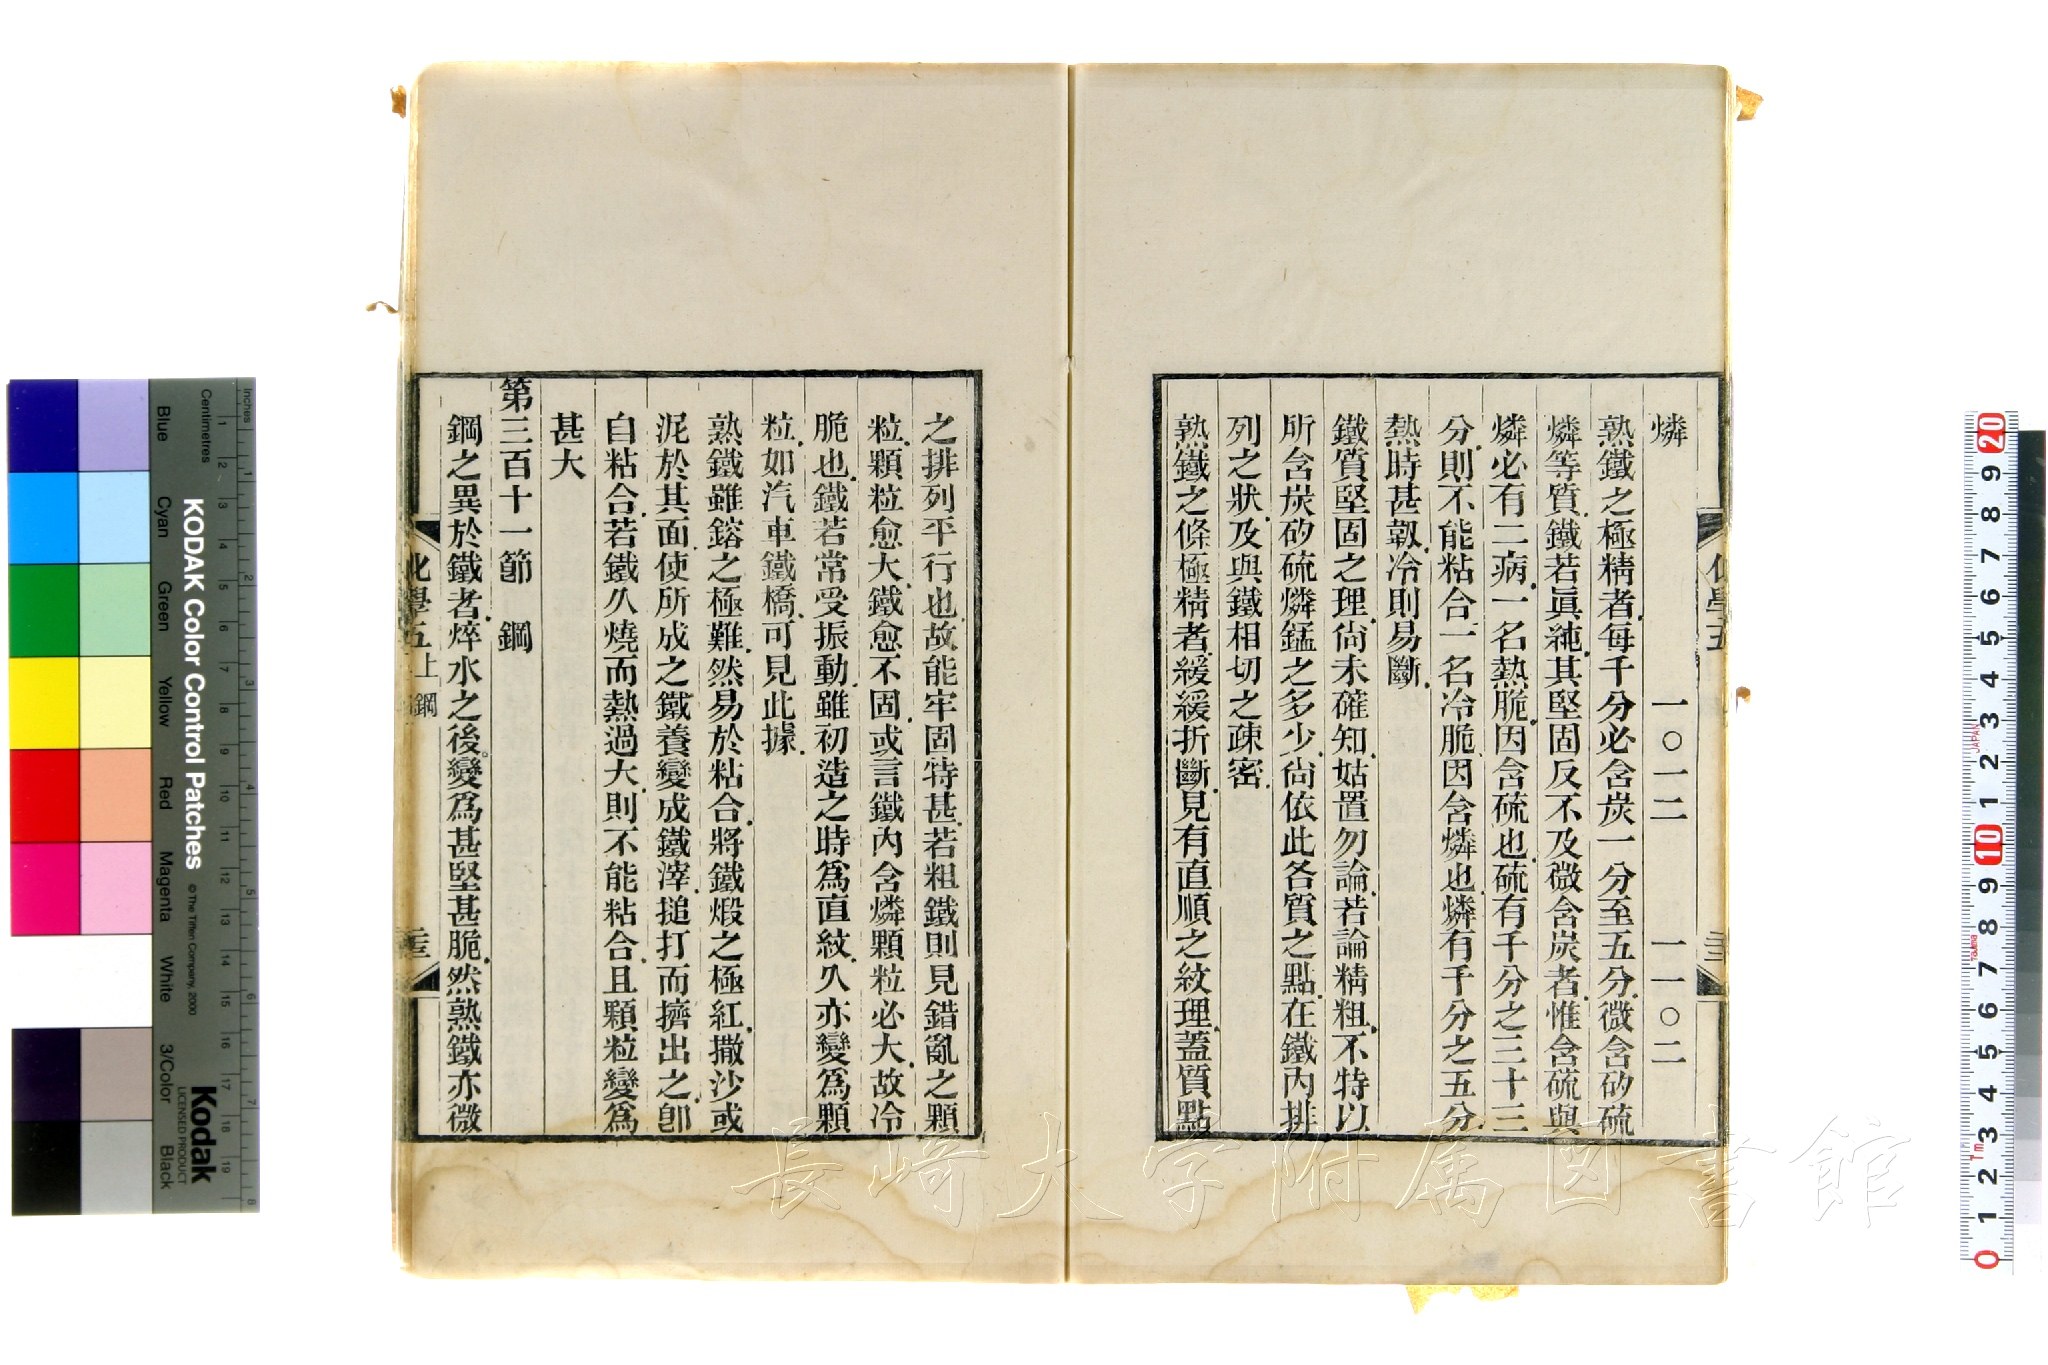 燐 一〇一二 一一〇二
熟鐵之極精者每千分必含炭一分至五分微含矽硫
燐等質鐵若眞純其堅固反不及微含炭者惟含硫與
燐必有二病一名熱脆因含硫也硫有千分之三十三
分則不能粘合一名冷脆因含燐也燐有千分之五分
熱時甚韌冷則易斷
鐵質堅固之理尙未確知姑置勿論若論精粗不特以
所含炭矽硫燐錳之多少尙依此各質之點在鐵內排
列之狀及與鐵相切之疎密
熟鐵之條極精者緩緩折斷見有直順之紋理蓋質點
之排列平行也故能牢固特甚若粗鐵則見錯亂之顆
粒顆粒愈大鐵愈不固或言鐵內含燐顆粒必大故冷
脆也鐵若常受振動雖初造之時爲直紋久亦變爲顆
粒如汽車鐵橋可見此據
熟鐵雖鎔之極難然易於粘合將鐵煅之極紅撒沙或
泥於其面使所成之鐵養變成鐵滓搥打而擠出之卽
自粘合若鐵久燒而熱過大則不能粘合且顆粒變爲
甚大
第三百十一節 鋼
鋼之異於鐵者焠水之後變爲甚堅甚脆然熟鐵亦微
化學五上 鋼 二三
長崎大学附属図書館
KODAK Color Control Patches
© The Tiffen Company, 2000
Kodak
LICENSED PRODUCT
Inches
Centimetres
Blue
Cyan
Green
Yellow
Red
Magenta
White
3/Color
Black
JAPAN